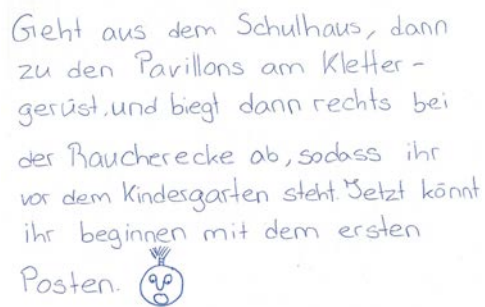 Geht aus dem Schulhaus, dann
zu den Pavillons am Kletter-
gerüst, und biegt dann rechts bei
der Raucherecke ab, sodass ihr
vor dem Kindergarten steht. Jetzt könnt
ihr beginnen mit dem ersten
Posten.